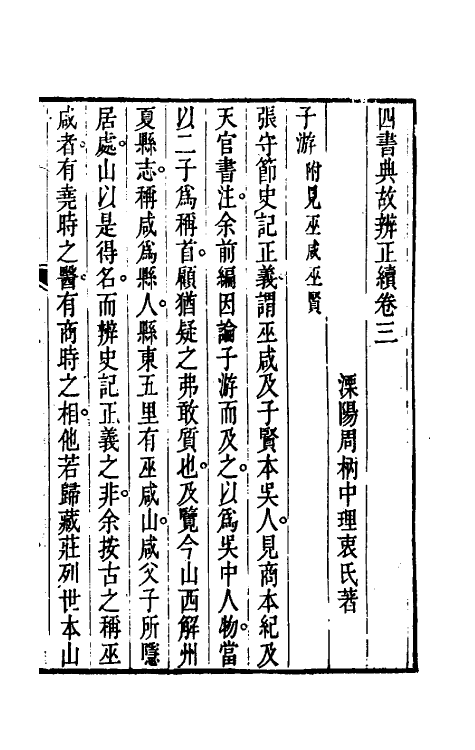 四書典故辨正續卷三
溧陽周柄中理衷氏著
子游附見巫咸巫賢
張守節史記正義謂巫咸及子賢本吳人。見商本紀及
天官書注。余前編因論子游而及之。以爲吳中人物。當
以二子爲稱首。顧猶疑之弗敢質也。及覽今山西解州
夏縣志。稱咸爲縣人。縣東五里有巫咸山。咸父子所隱
居處。山以是得名。而辨史記正義之非。余按古之稱巫
咸者。有堯時之醫。有商時之相。他若歸藏莊列世本山